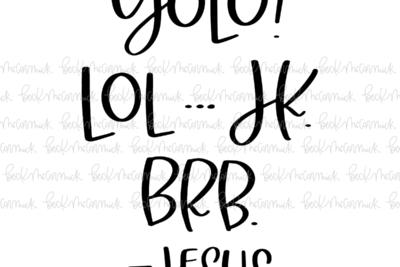 YOLO!
LOL ... JK.
BRB.
- JESUS